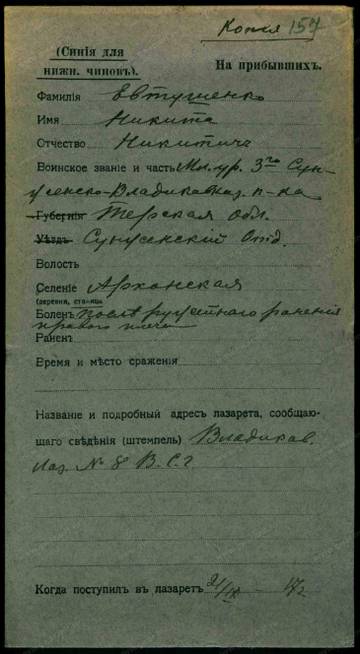 Копія 157
(Синія для
нижн. чиновъ).
На прибывшихъ.
Фамилія Евтушенко
Имя Никита
Отчество Никитичъ
Воинское званіе и часть Мл. ур. 3го Сун-
женско-Владикавказ. п-ка
Губернія Терская обл.
Уѣздъ Сунженскій Отд.
Волость
Селеніе Архонская
(деревня, станица)
Боленъ послѣ ружейнаго раненія
праваго плеча
Раненъ
Время и мѣсто сраженія
Названіе и подробный адресъ лазарета, сообщаю-
щаго свѣдѣнія (штемпель) Владикав.
Лаз. № 8 В. С. Г.
Когда поступилъ въ лазаретъ 2/IX 17 г.